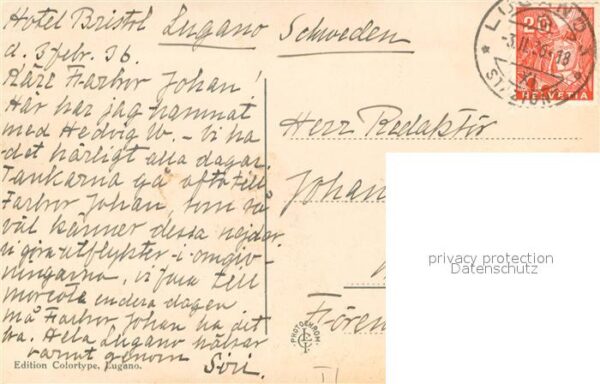 Hotel Bristol Lugano
d. 3 febr. 36.
Käre Farbror Johan!
Här har jag hamnat
med Hedvig W. - Vi ha
det härligt alla dagar.
Tankarna gå ofta till
Farbror Johan, som så
väl känner dessa nejder
vi göra utflykter i omgiv-
ningarna, vi fara till
morcote endera dagen
må Farbror Johan ha det
bra. Hela Lugano hälsar
varmt genom
Siri.
Edition Colortype, Lugano.
Schweden
Herr Redaktör
Johan
Fören
PHOTOCHROM
LUGANO
-3.II.36-18
20
HELVETIA
privacy protection
Datenschutz